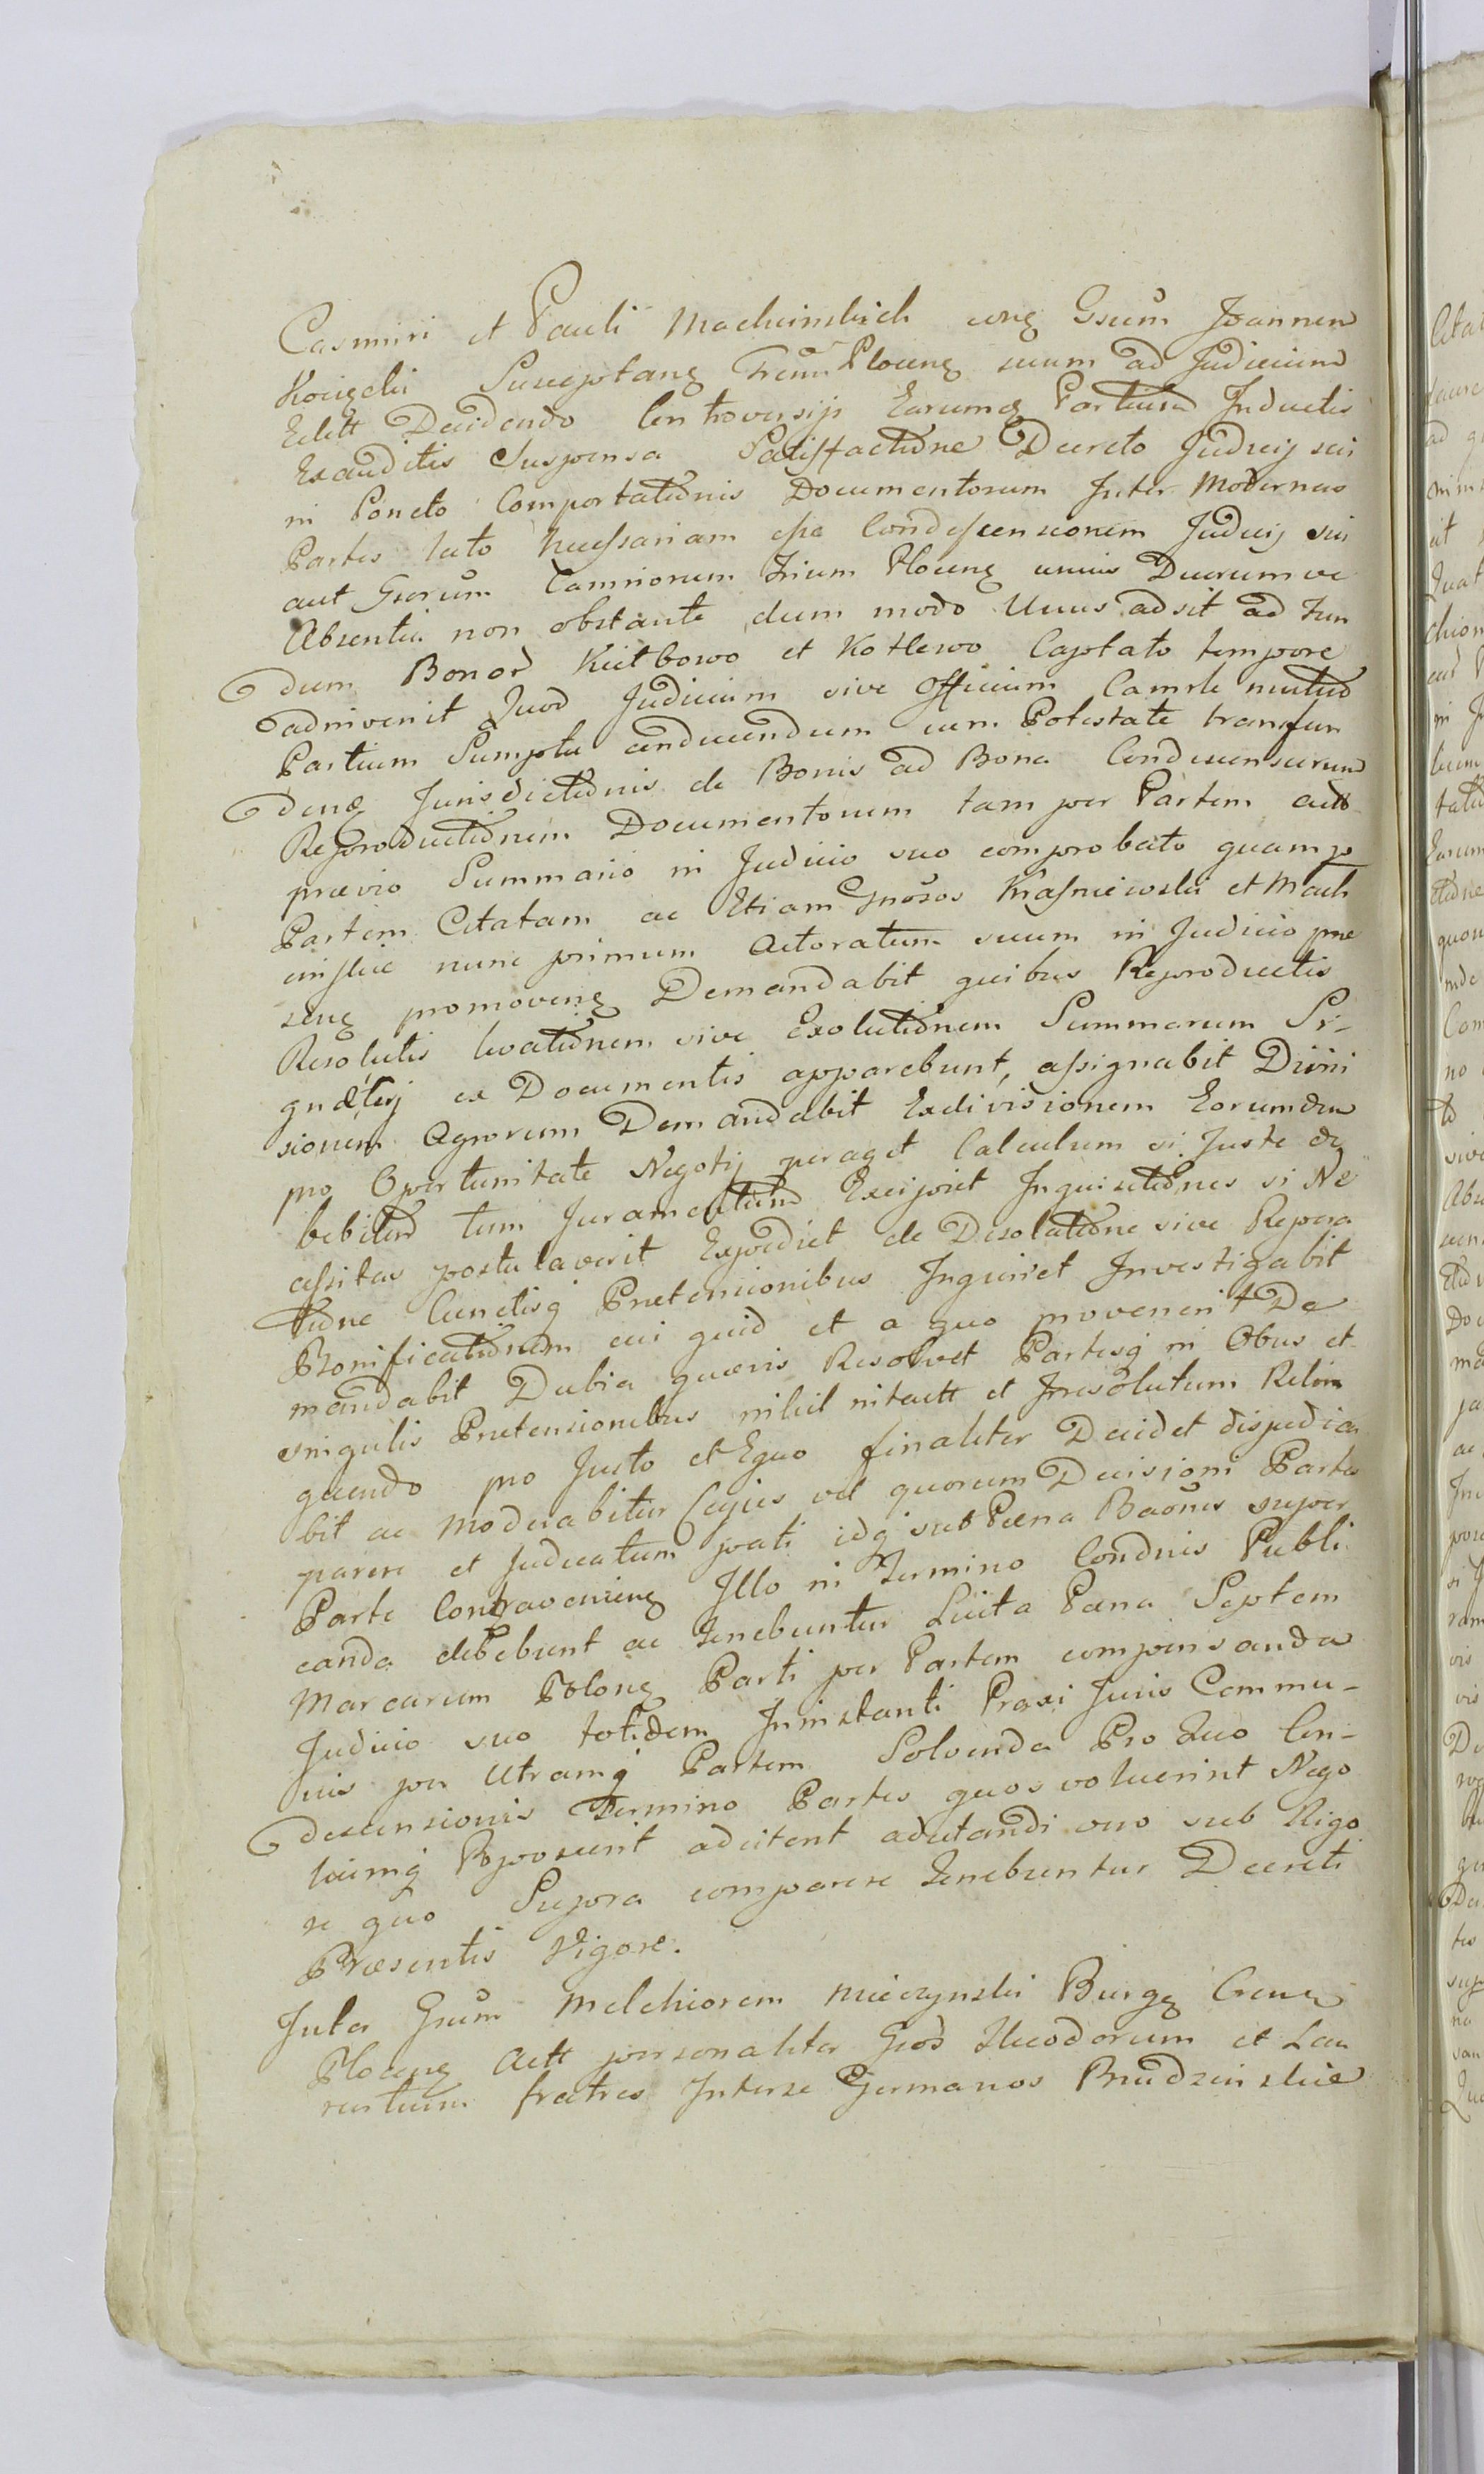 Casmiri et Pauli Machcinskich coneg Gsum Joannem
Kozicki Susceptaneg Trrum Ploceneg suum ad Judicium
Edett Decidendo Controversijs Earumq Partium Inductis
Exauditis Suspensa Satisfactione Decreto Judicij sui
in Poncto Comportationis Documentorum Inter Modernas
Partes lato necessariam esse Condescensionem Judicij sui
aut Gsorum Camriorum Trium Ploceneg unius Duorumve
Absentia non obstante dum modo Unus adsit ad Fun
dum Bonor Kiełbowo et Kotlewo Captato tempore
adinvenit Quod Judicium sive Officium Camrle mutuo
Partium Sumptu conducendum cum Potestate transfun
dendæ Jurisdictionis de Bonis ad Bona Condescensurum
Reproductionem Documentorum tam per Partem actt
prævio Summario in Judicio suo comprobato quam p
Partem Citatam ac Etiam Gnosos Krasniewski et Mach
cinskie nunc primum Actoratum suum in Judicio præ
senq promoveneg Demandabit quibus Reproductis
Resolutis levationem sive Exolutionem Summarum Si-
quæ ex Documentis apparebunt, assignabit Divi
sionem Agrorum Demandabit Exdivisionem Eorumdem
pro Oportunitate Negotij peraget Calculum si Juste de
bebitur tum Juramentum Excipiet Inquisitiones si Ne
cessitas postulaverit Expediet de Desolatione sive Repera
tione Cunctisq Prætensionibus Inquiret Investigabit
Bonificationem cui quid et a quo provenerit De
mandabit Dubia quævis Resolvet Partesq in Obus et
singulis Prætensionibus nihil intactt et Irresolutum Relin
quendo pro Justo et Equo finaliter Decidet dijudica
bit ac Moderabitur Cujus vel quorum Decisioni Partes
parere et Judicatum pati idq sub Pæna Baonis super
Parte Contraveniene Illo in Termino Condnis Publi
canda debebunt ac Tenebuntur Luita Pæna Septem
Marcarum Poloneg Parti per Partem compensanda
Judicio suo totidem Ininstanti Praxi Juris Commu-
nis per Utramq Partem Solvenda Pro Quo Con-
descensionis Termino Partes quos voluerint Nego
tiumq Poposcerit adcitent adcitandi vero sub Rigo
re quo Supra comparere Tenebuntur Decreti
Præsentis Vigore.
Inter Gsum Melchiorem Mieczynski Burgg Crenseg
Ploceneg Actt personaliter Gsos Theodorum et Lau
rentium fratres Interse Germanos Brudzinskie